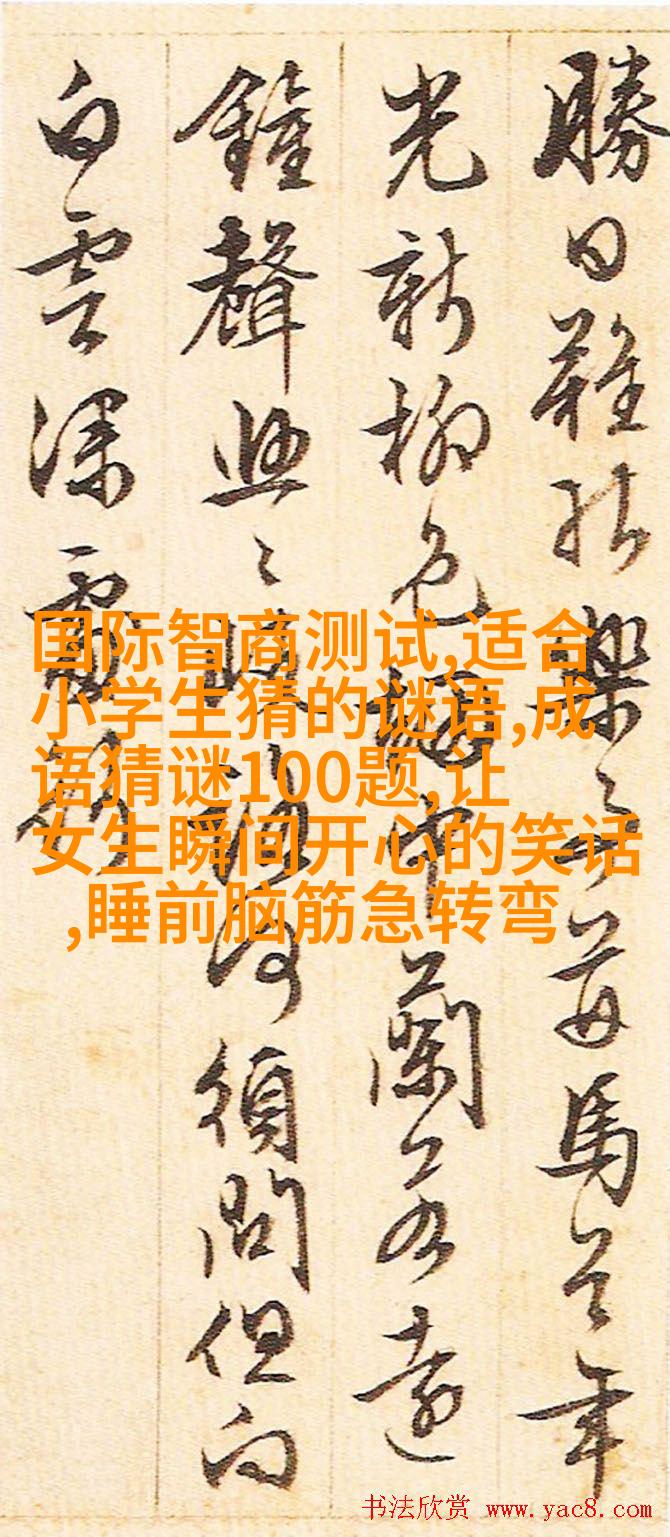 勝日難得樂馬年
光新柳色中蘭若遠
鐘聲何須問但向
白雲深處
国际智商测试,适合
小学生猜的谜语,成
语猜谜100题,让
女生瞬间开心的笑话
,睡前脑筋急转弯
书法欣赏 www.yac8.com